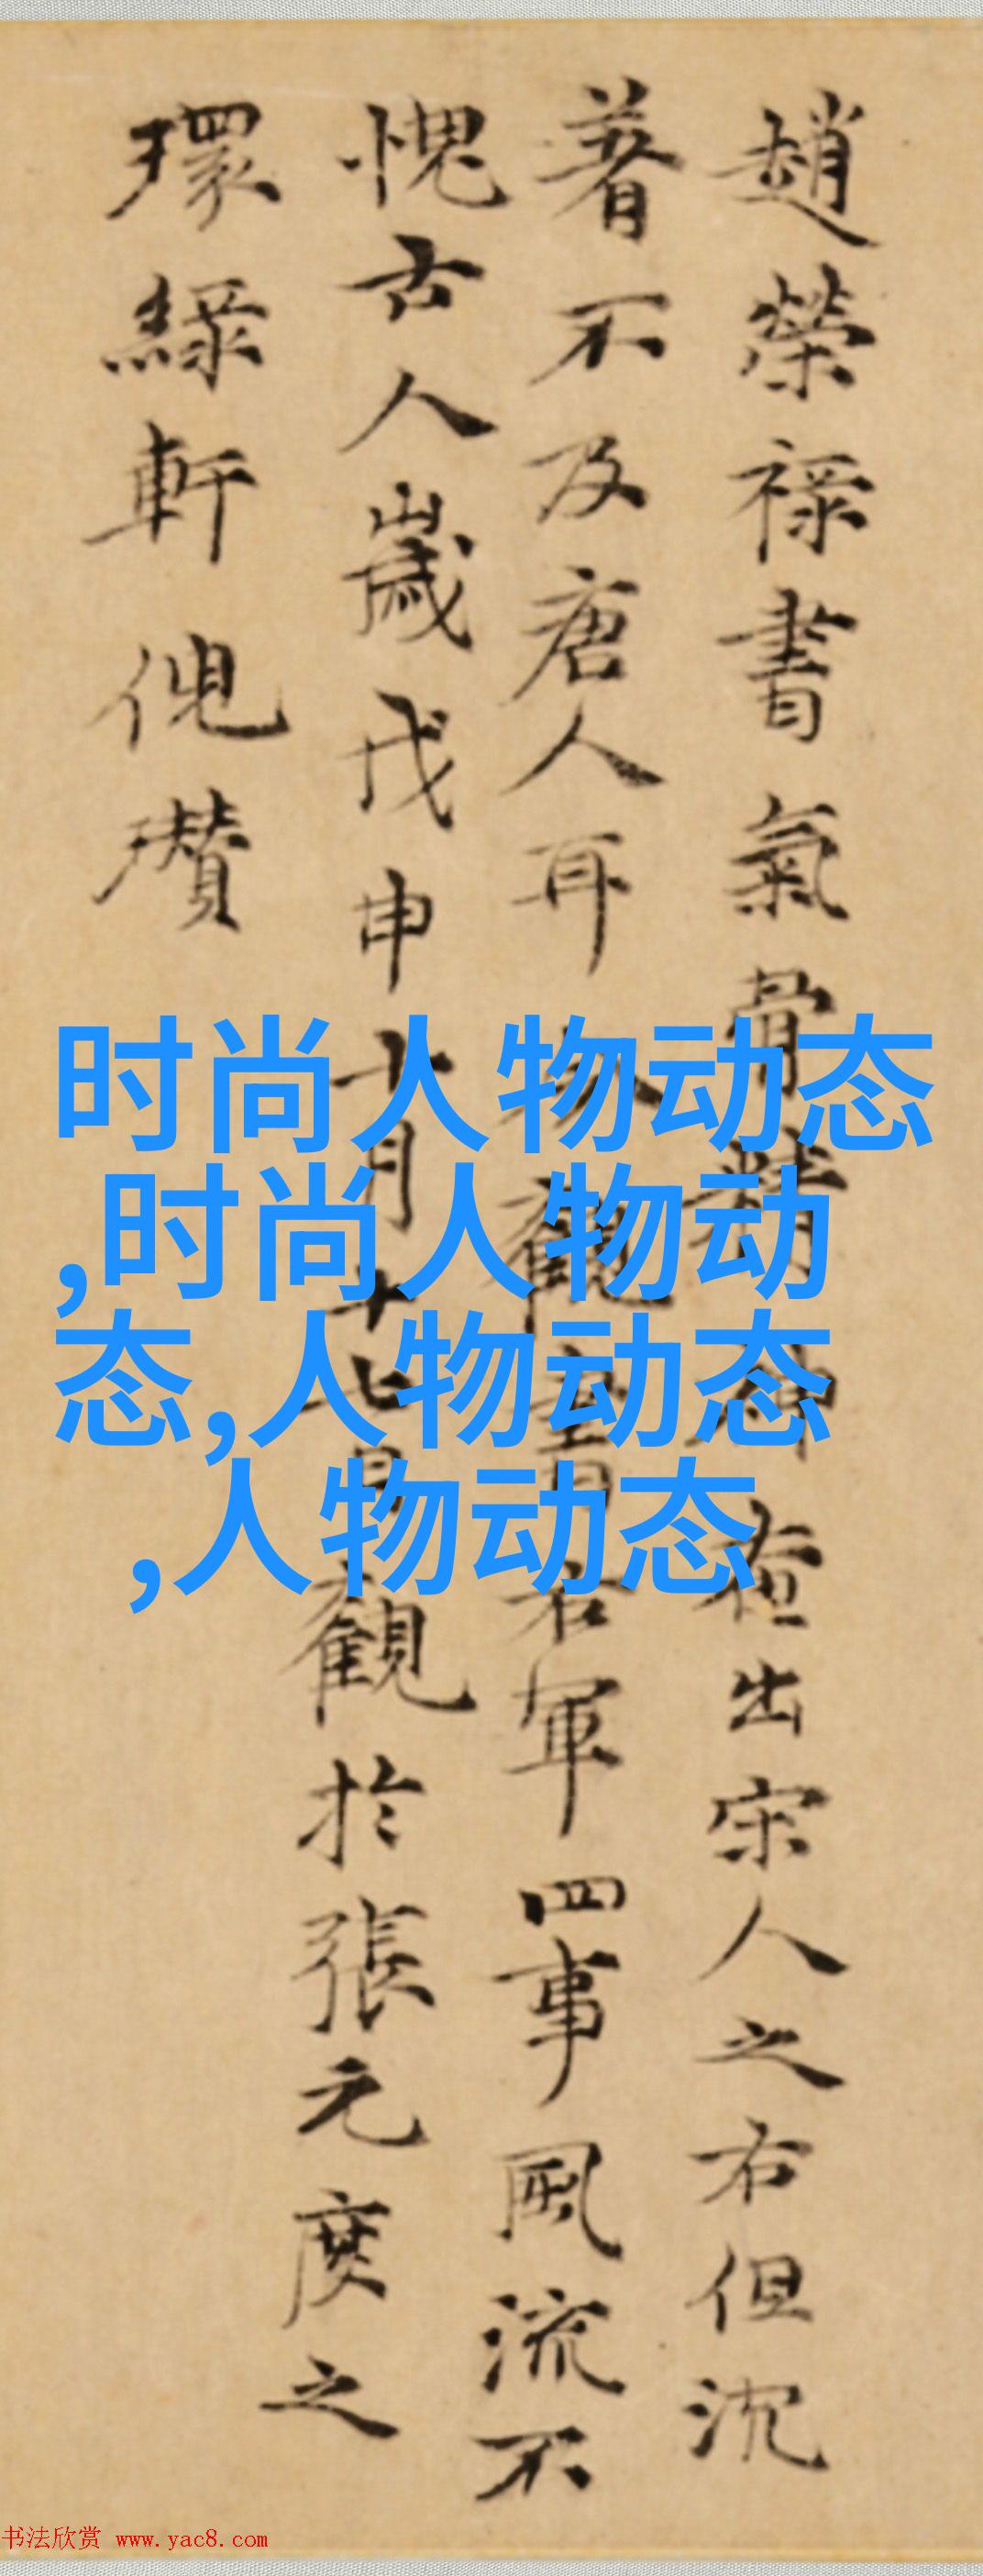 趙榮祿書氣骨精神 出宋人之右但沉
著不及唐人耳 觀 書右軍四事風流不
愧古人歲戊申十月十七日觀於張元度之
環綠軒倪瓚
时尚人物动态
,时尚人物动
态,人物动态
,人物动态
书法欣赏 www.yac8.com